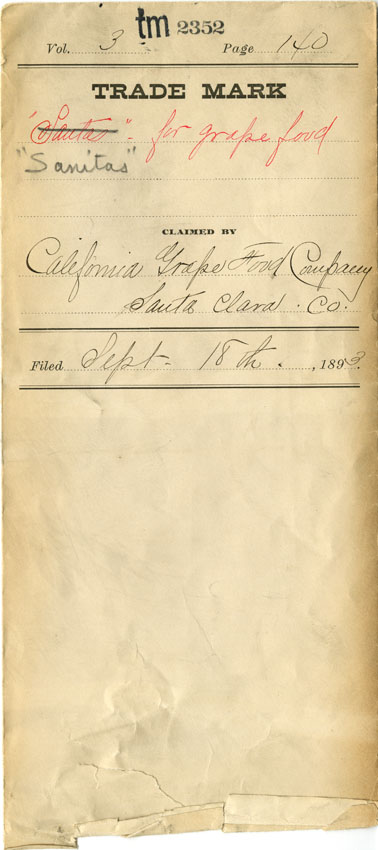 tm 2352
Vol. 3 Page 140
TRADE MARK
"Santa" - for grape food
"Sanitas"
CLAIMED BY
California Grape Food Company
Santa Clara . Co.
Filed Sept - 18th . , 1893.